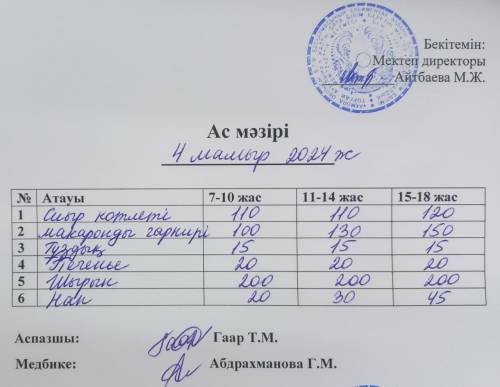 Бекітемін:
Мектеп директоры
Айтбаева М.Ж.
Ас мәзірі
4 мамыр 2024 ж
№ Атауы 7-10 жас 11-14 жас 15-18 жас
1 Сиыр котлеті 110 110 120
2 макаронды гарнирі 100 130 150
3 Тұздық 15 15 15
4 Печенье 20 20 20
5 Шырын 200 200 200
6 Нан 20 30 45
Аспазшы: Гаар Т.М.
Медбике: Абдрахманова Г.М.